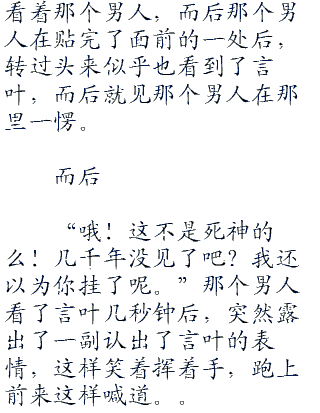 看着那个男人，而后那个男
人在贴完了面前的一处后，
转过头来似乎也看到了言
叶，而后就见那个男人在那
里一愣。
而后
“哦！这不是死神的
么！几千年没见了吧？我还
以为你挂了呢。”那个男人
看了言叶几秒钟后，突然露
出了一副认出了言叶的表
情，这样笑着挥着手，跑上
前来这样喊道。。